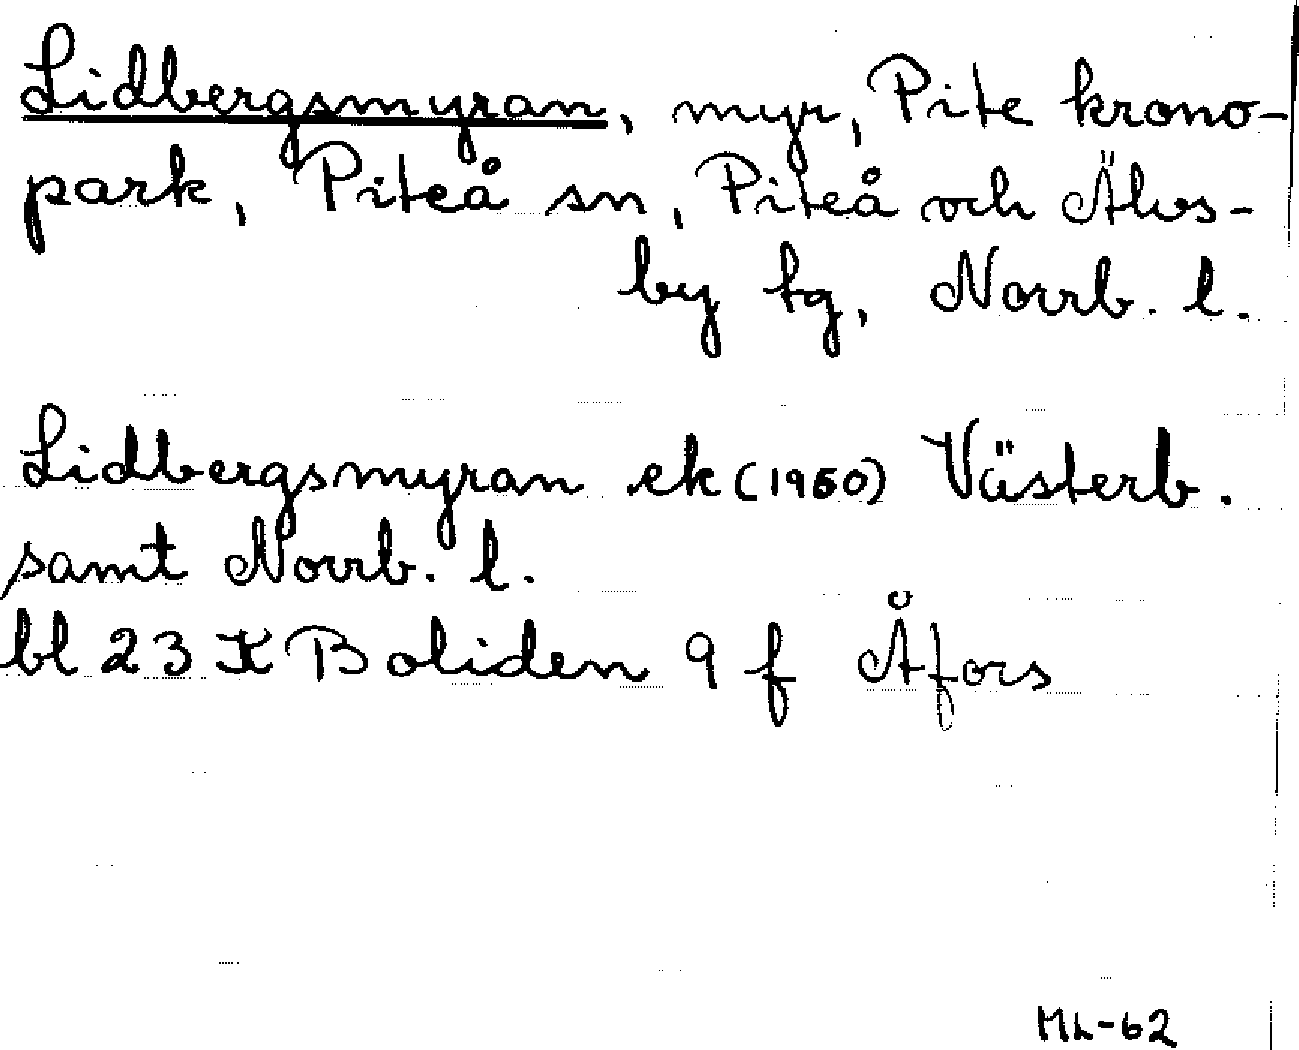 Lidbergsmyran, myr, Pite krono-
park, Piteå sn, Piteå och Älvs-
by tg, Norrb. l.
Lidbergsmyran ek (1950) Västerb.
samt Norrb. l.
bl 23 K Boliden 9 f Åfors
ML-62